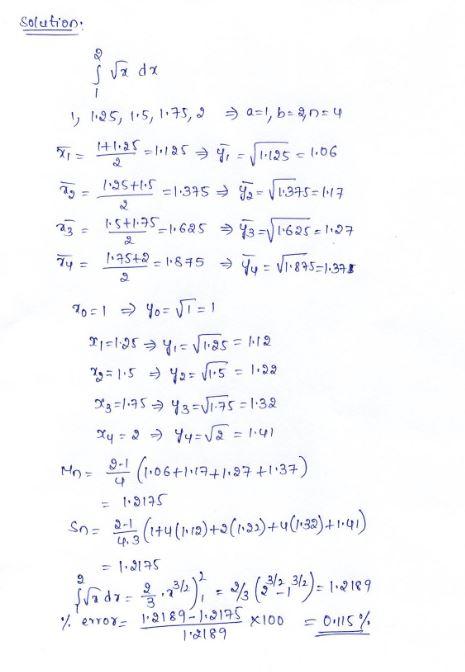 Solution:
2
∫ √x dx
1
1, 1.25, 1.5, 1.75, 2 ⇒ a=1, b=2, n=4
x̄₁ = (1+1.25)/2 = 1.125 ⇒ ȳ₁ = √1.125 = 1.06
x̄₂ = (1.25+1.5)/2 = 1.375 ⇒ ȳ₂ = √1.375 = 1.17
x̄₃ = (1.5+1.75)/2 = 1.625 ⇒ ȳ₃ = √1.625 = 1.27
x̄₄ = (1.75+2)/2 = 1.875 ⇒ ȳ₄ = √1.875 = 1.37
x₀=1 ⇒ y₀=√1 = 1
x₁=1.25 ⇒ y₁=√1.25 = 1.12
x₂=1.5 ⇒ y₂=√1.5 = 1.22
x₃=1.75 ⇒ y₃=√1.75 = 1.32
x₄ = 2 ⇒ y₄=√2 = 1.41
Mn = (2-1)/4 (1.06+1.17+1.27+1.37)
= 1.2175
Sn = (2-1)/4.3 (1+4(1.12)+2(1.22)+4(1.32)+1.41)
= 1.2175
∫₁² √x dx = 2/3 · x^3/2)₁² = 2/3 (2^3/2 - 1^3/2) = 1.2189
% error = (1.2189-1.2175)/1.2189 ×100 = 0.115%